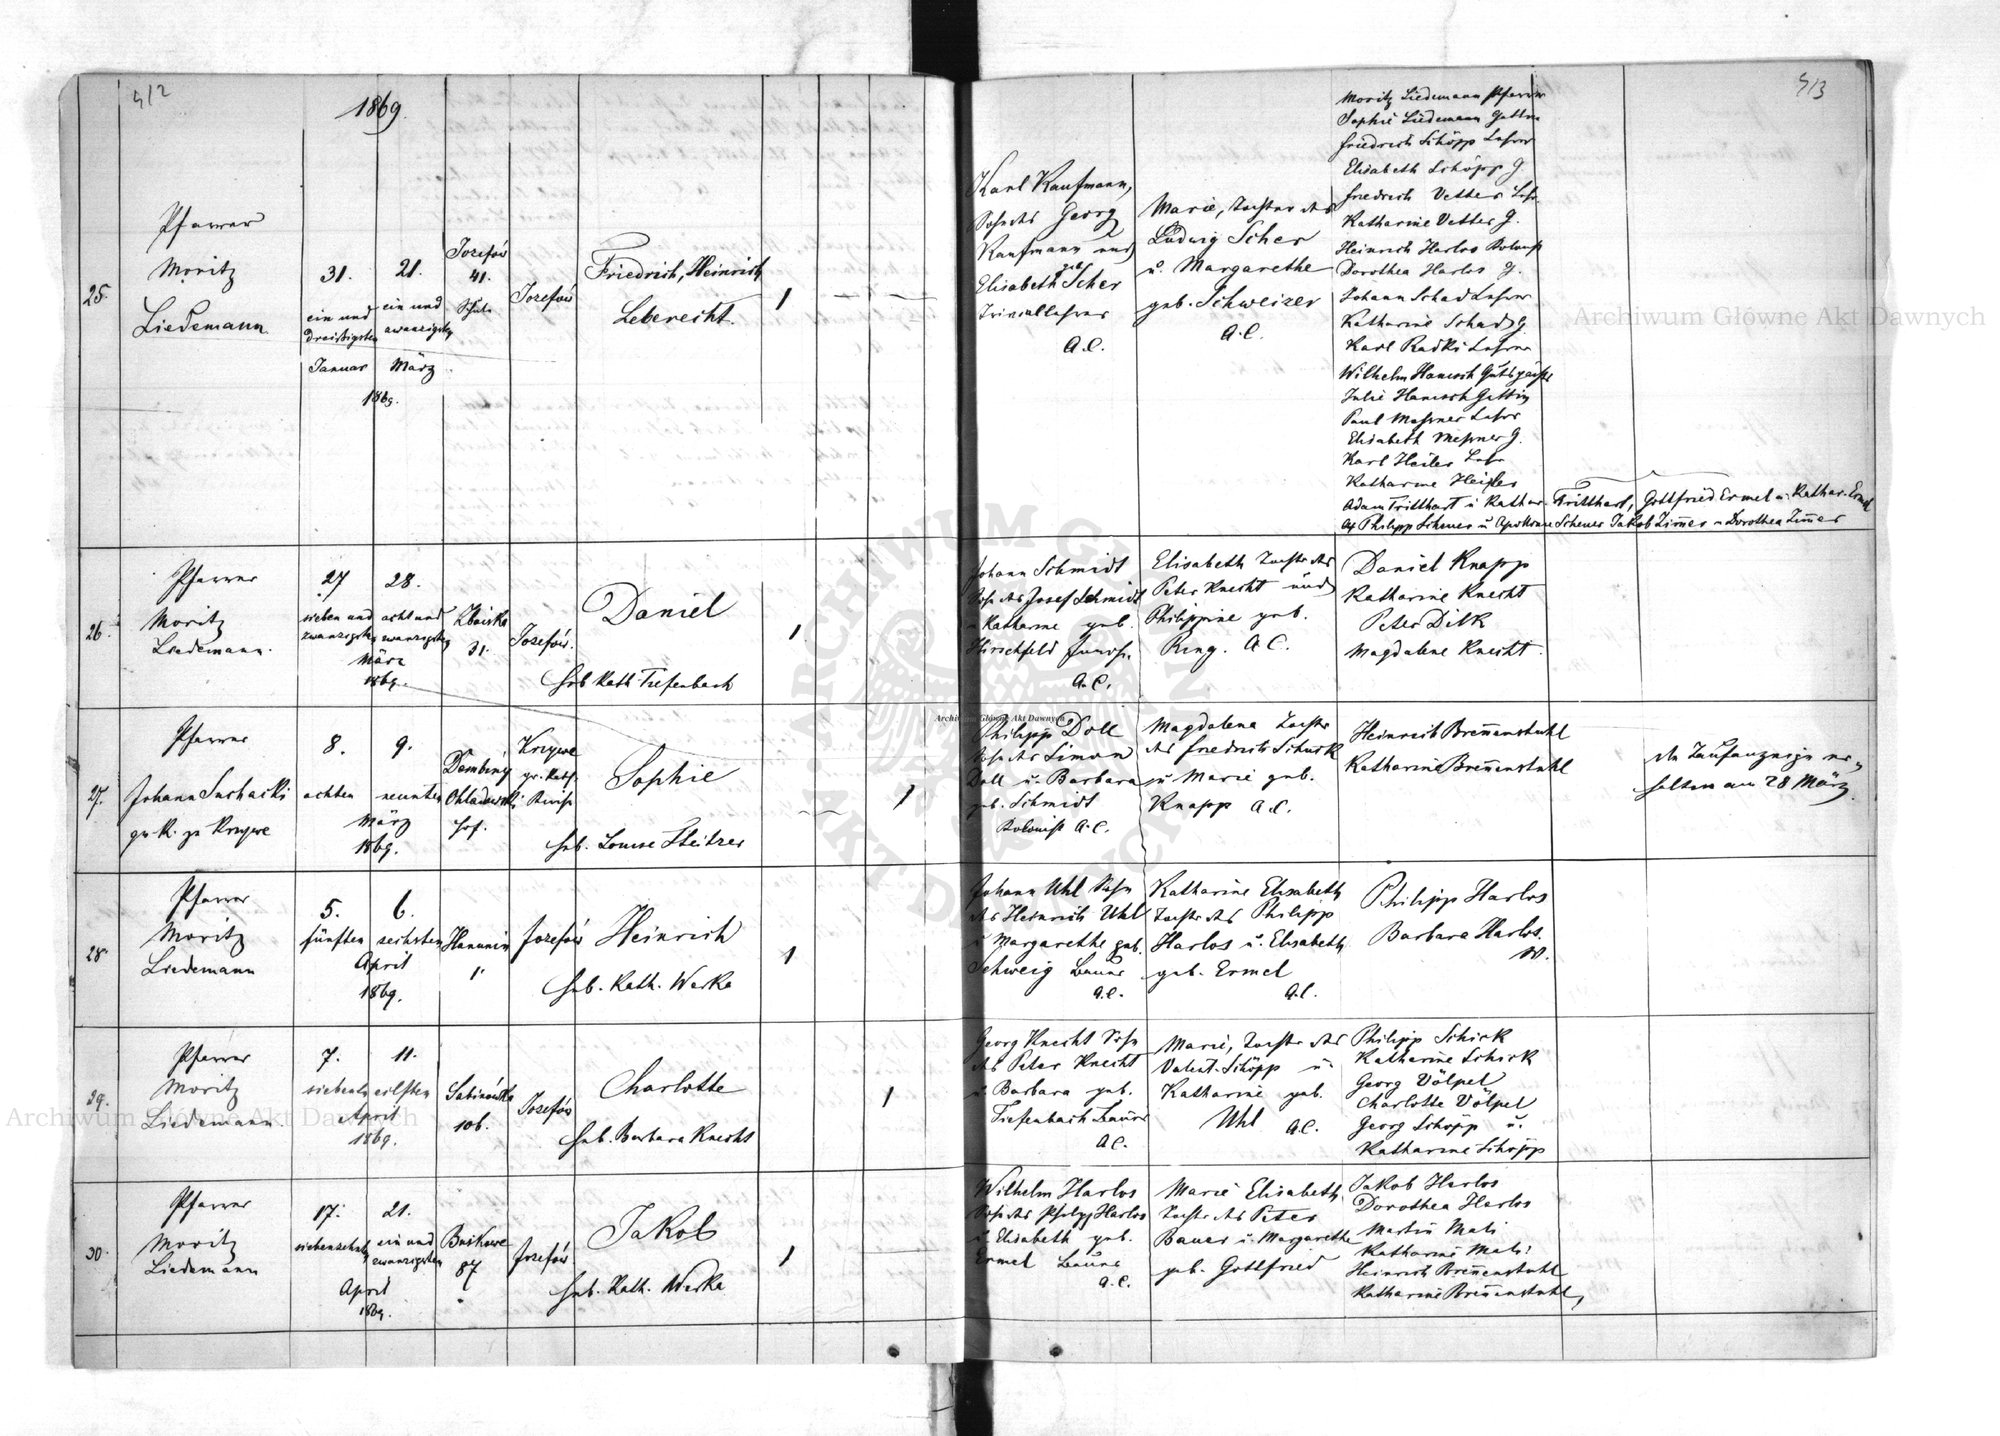 412
1869.
25.
Pfarrer
Moritz
Liedemann.
31.
ein und
dreißigsten
Januar
21.
ein und
zwanzigsten
März
1869.
Josefów
41.
Schule
Josefów
Friedrich, Heinrich
Leberecht.
1
26.
Pfarrer
Moritz
Liedemann.
27
sieben und
zwanzigsten
28.
acht und
zwanzigsten
März
1869.
31.
Josefów.
Daniel
Heb. Kath. Tiefenbach
1
27.
Pfarrer
Johann
gr. K. zu Krzywe
8.
achten
9.
neunten
März
1869.
Hof.
Krzywe
gr. Kath.
Sophie
Heb. Louise
1
28.
Pfarrer
Moritz
Liedemann
5.
fünften
6.
sechsten
April
1869.
Hanunin
1
Josefów
Heinrich
Heb. Kath. Warka
1
29.
Pfarrer
Moritz
Liedemann.
7.
siebenten
11.
eilften
April
1869.
Sabinówka
106.
Josefów
Charlotte
Heb. Barbara Knecht
1
30.
Pfarrer
Moritz
Liedemann
17.
siebenzehnten
21.
ein und
zwanzigsten
April
1869.
87
Josefów
Jakob
Heb. Kath. Warka
1
413
Karl Kaufmann,
Sohn des Georg
Kaufmann und
Elisabeth geb. Scher
Triviallehrer
A.C.
Marie, Tochter des
Ludwig Scher
u. Margarethe
geb. Schweizer
A.C.
Moritz Liedemann Pfarrer
Sophie Liedemann Gattin
Friedrich Schöpp Lehrer
Elisabeth Schöpp G.
Friedrich Vetter Lehr.
Katharine Vetter G.
Heinrich Harlos Kolonist
Dorothea Harlos G.
Johann Schad Lehrer
Katharine Schad G.
Karl Radki Lehrer
Wilhelm Hanusch Gutspächter
Julie Hanusch Gattin
Paul Meßner Lehrer
Elisabeth Meßner G.
Karl Heiler Lehr.
Katharine Heiler
Adam Tritthart u Kathar. Tritthart, Gottfried Ermel u. Kathar. Ermel
Philipp Scheuer u Apollonie Scheuer Jakob Zimer u Dorothea Zimer
Johann Schmidt
Sohn des Josef Schmidt
u Katharine geb.
Hirschfeld
A.C.
Elisabeth Tochter des
Peter Knecht und
Philippine geb.
Ring. A.C.
Daniel Knapp
Katharine Knecht
Peter Dilk
Magdalene Knecht.
Philipp Doll
Sohn des Simon
Doll u. Barbara
geb. Schmidt
Kolonist A.C.
Magdalena Tochter
des Friedrich Schick
u. Marie geb.
Knapp A.C.
Heinrich Brennenstuhl
Katharine Brennenstuhl
den Taufanzeige er-
halten am 28 März.
Johann Uhl Sohn
des Heinrich Uhl
u Margarethe geb.
Schweig Bauer
A.C.
Katharine Elisabeth
Tochter des Philipp
Harlos u. Elisabeth
geb. Ermel
A.C.
Philipp Harlos
Barbara Harlos
W.
Georg Knecht Sohn
des Peter Knecht
u. Barbara geb.
Tiefenbach Bauer
A.C.
Marie, Tochter des
Valent. Schöpp u
Katharine geb.
Uhl A.C.
Philipp Schick
Katharine Schick
Georg Völpel
Charlotte Völpel
Georg Schöpp u.
Katharine Schöpp
Wilhelm Harlos
Sohn des Philipp Harlos
u. Elisabeth geb.
Ermel Bauer
A.C.
Marie Elisabeth,
Tochter des Peter
Bauer u. Margarethe
geb. Gottfried
Jakob Harlos
Dorothea Harlos
Martin Mali
Katharine Mali
Heinrich Brennenstuhl
Katharine Brennenstuhl
Archiwum Główne Akt Dawnych
Archiwum Główne Akt Dawnych
Archiwum Główne Akt Dawnych
ARCHIWUM GŁÓWNE AKT DAWNYCH